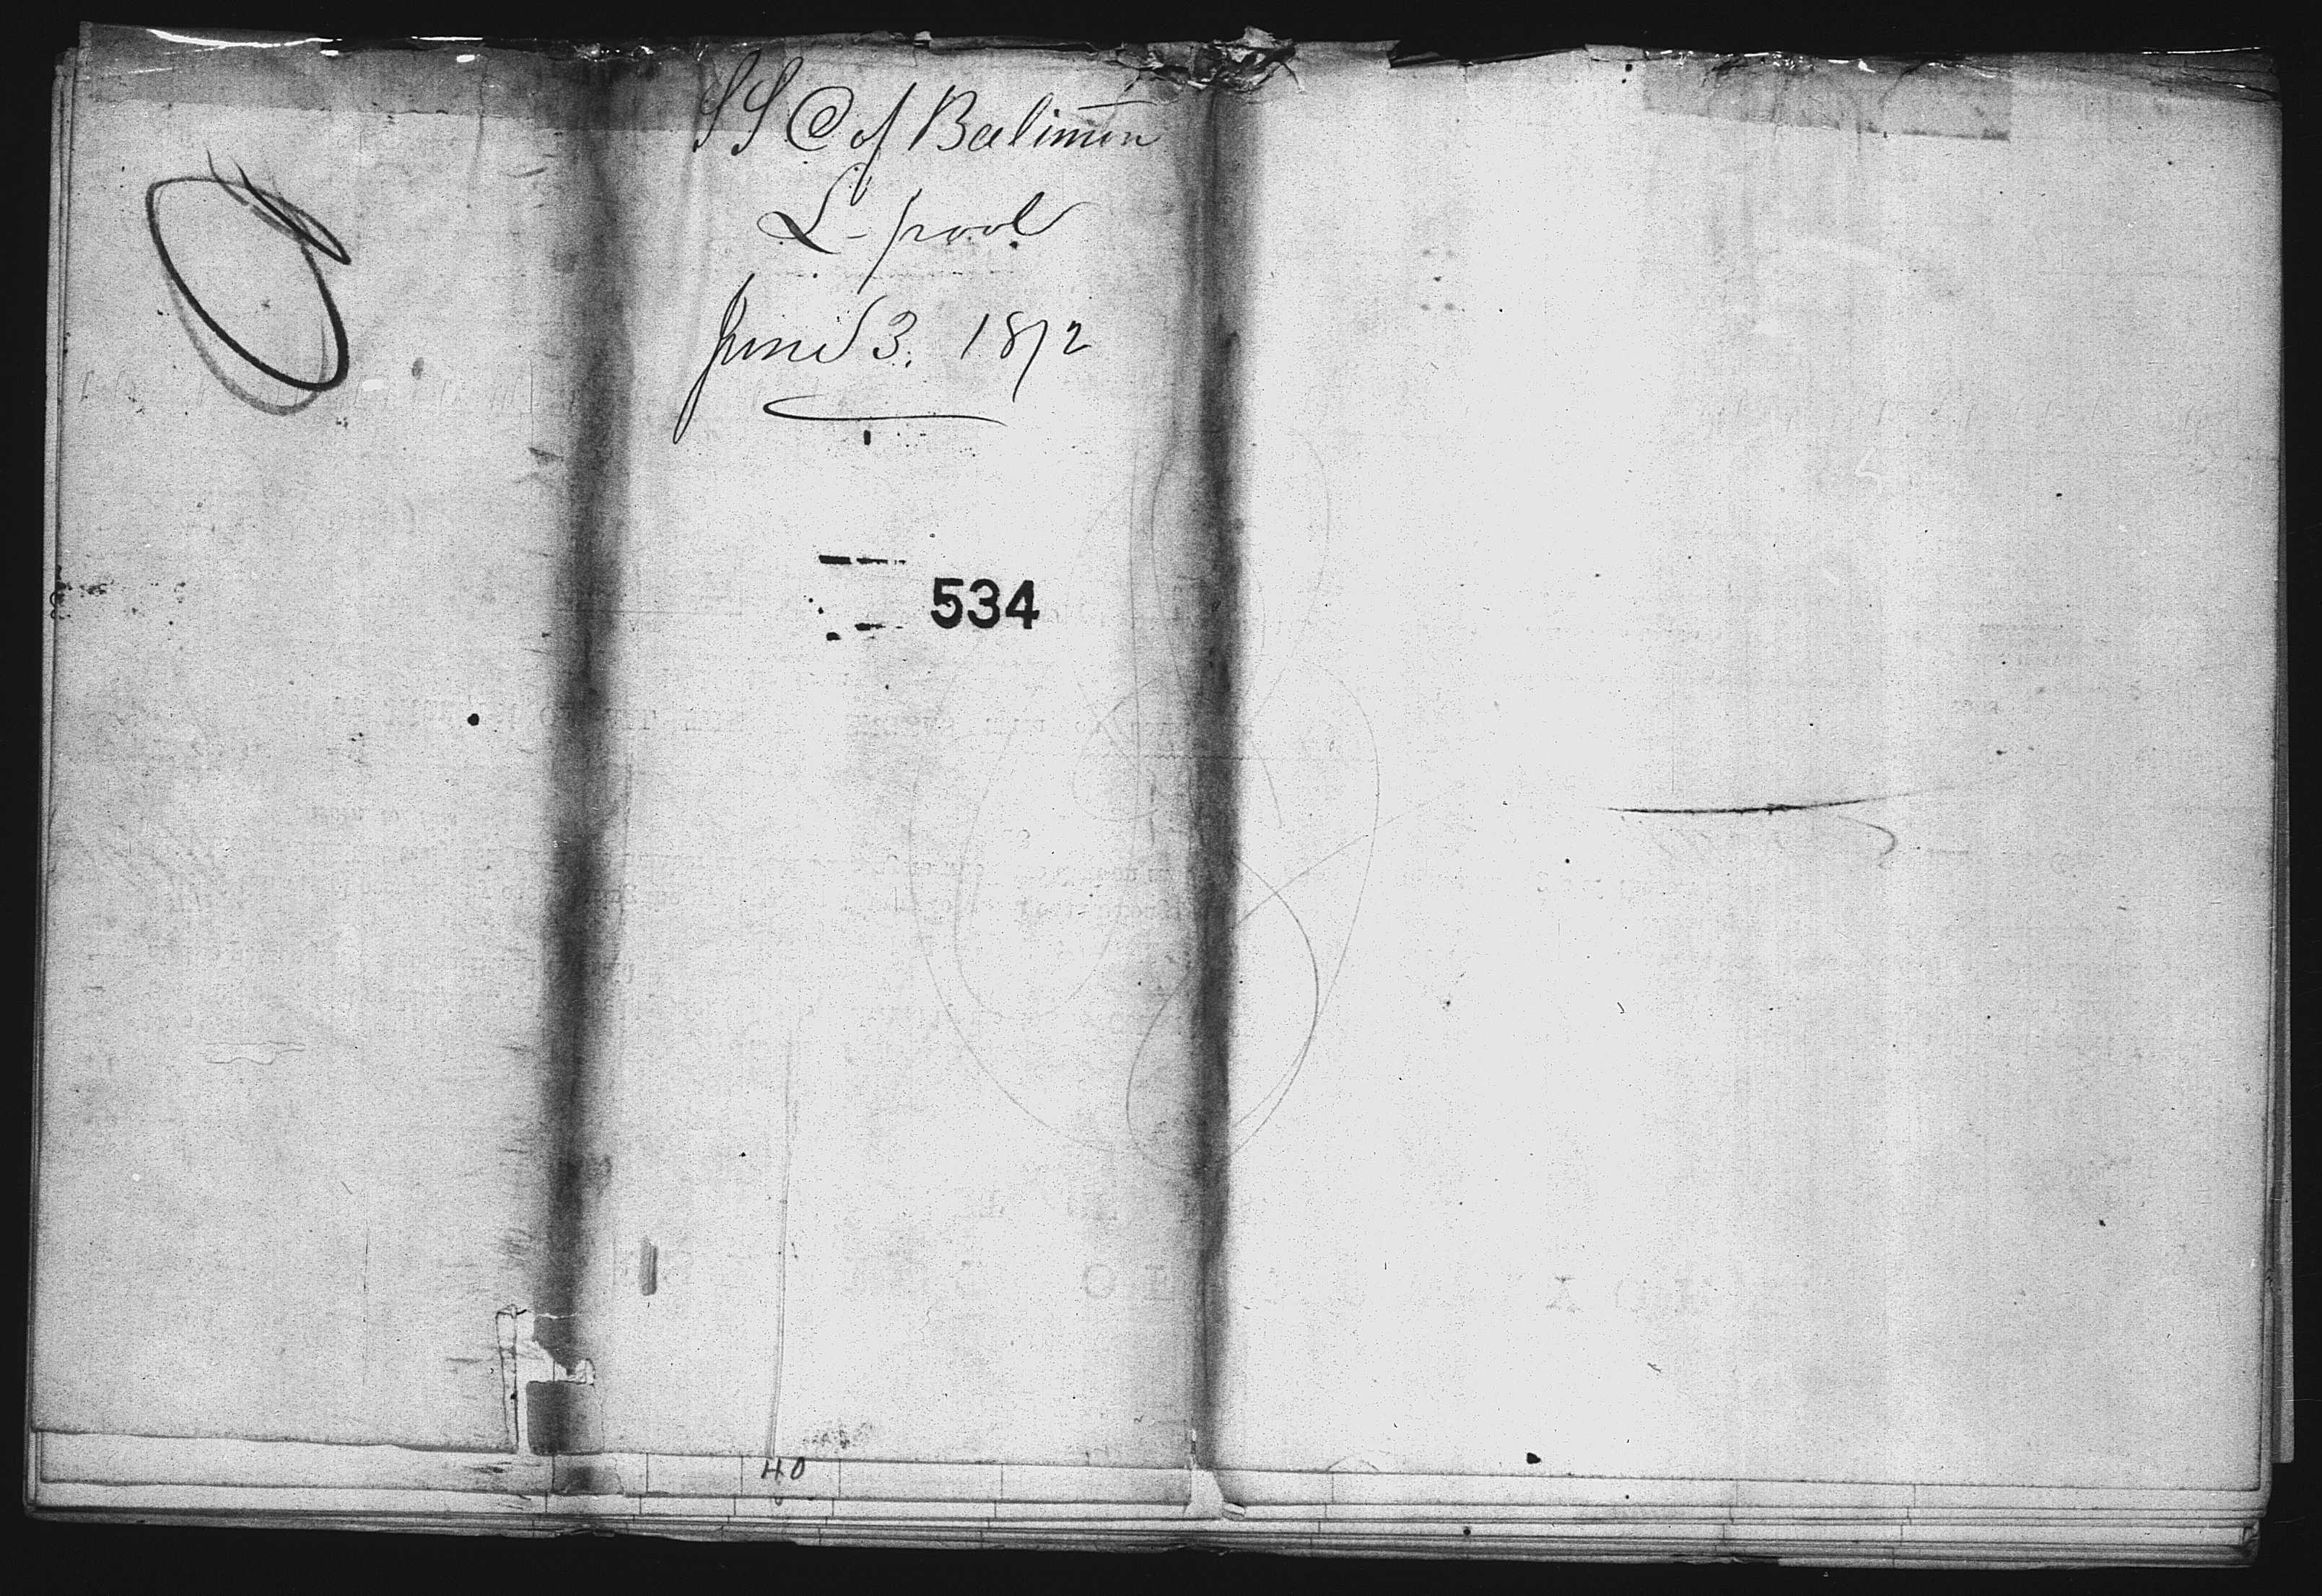 SS C of Baltimore
L-pool
June 3. 1872
534
40